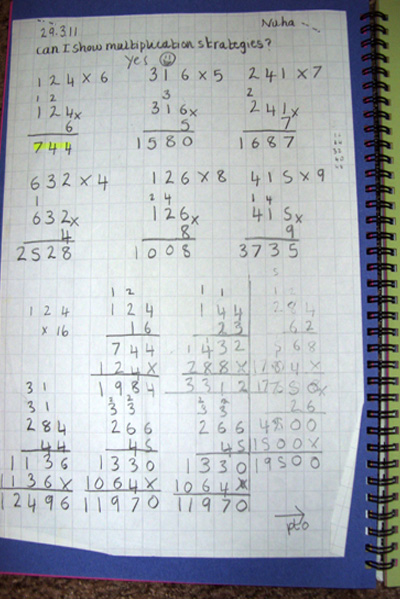 29.3.11 Nuha
can I show multiplication strategies?
yes
124×6 316×5 241×7
1 2 3 2
124× 316× 241×
6 5 7
744 1580 1687
632×4 126×8 415×9
1 2 4 1 4
632× 126× 415×
4 8 9
2528 1008 3735
1 2 1 1
124 124 144 284
×16 16 23 62
744 1432 568
124× 288×
1984 3312
3 1
3 1 3 3 3 3 26
284 266 266 4800
44 45 45 1500×
1136 1330 1330 19500
1136× 1064× 1064×
12496 11970 11970
pto